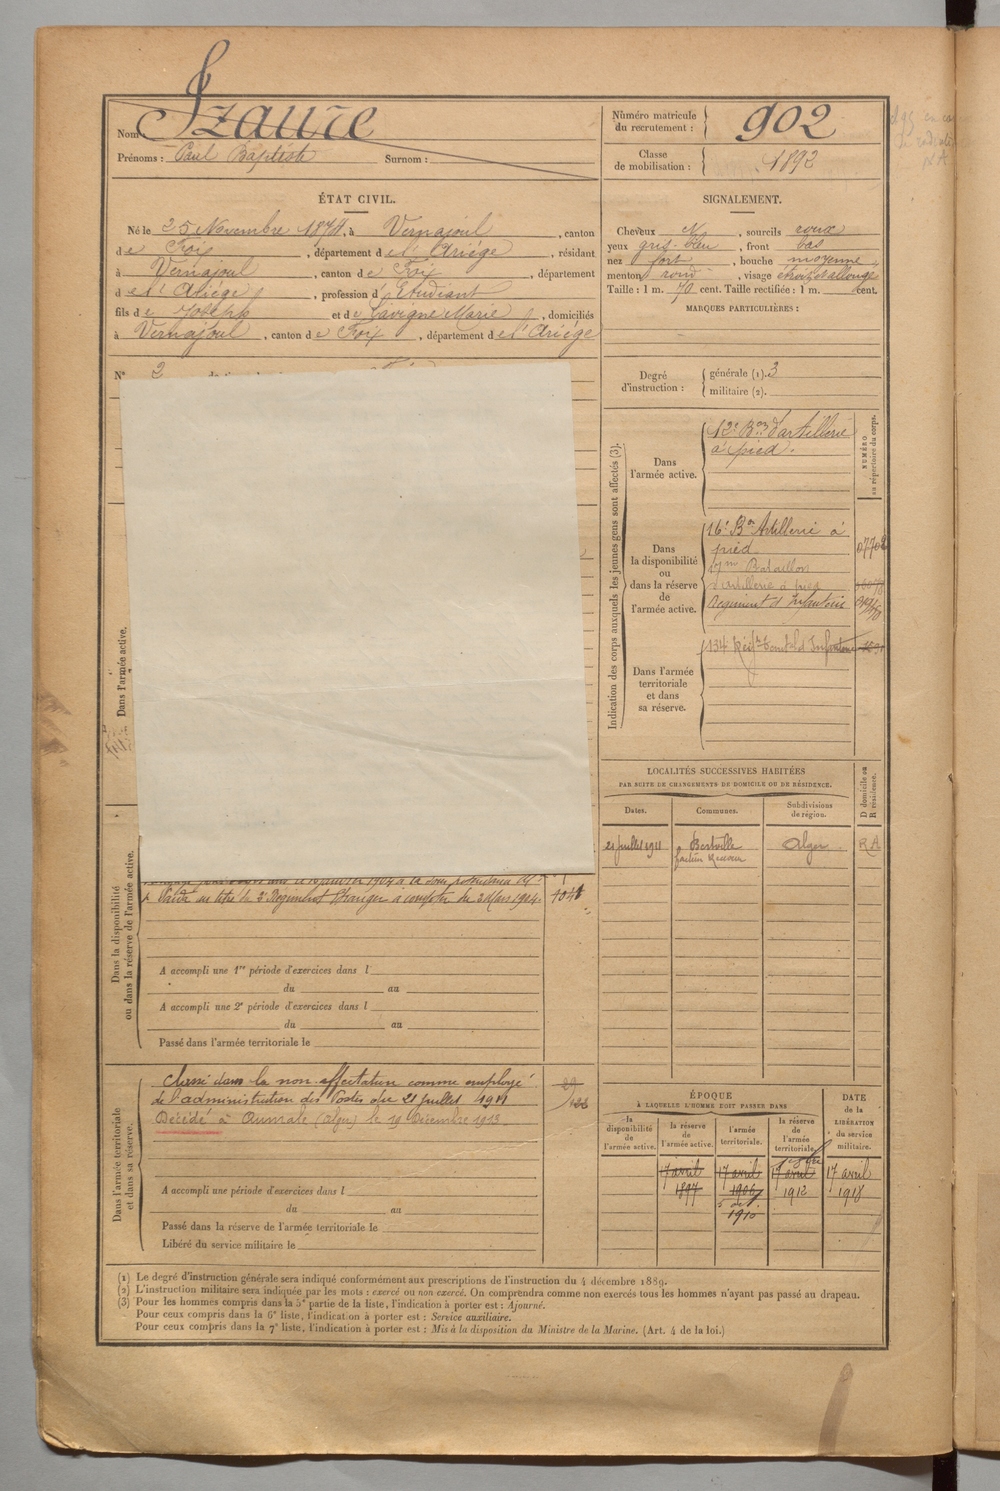 Nom Izaure
Prénoms : Paul Baptiste Surnom :
Numéro matricule du recrutement : 902
Classe de mobilisation : 1892
ÉTAT CIVIL.
Né le 25 Novembre 1874, à Vernajoul, canton
de Foix, département de l'Ariège, résidant
à Vernajoul, canton de Foix, département
de l'Ariège, profession d'Etudiant
fils de Joseph et de Lavigne Marie, domiciliés
à Vernajoul, canton de Foix, département de l'Ariège
N° 2
SIGNALEMENT.
Cheveux N, sourcils roux
yeux gris-bleu, front bas
nez fort, bouche moyenne
menton rond, visage étroit et allongé
Taille : 1 m. 70 cent. Taille rectifiée : 1 m. cent.
MARQUES PARTICULIÈRES :
Degré d'instruction :
générale (1). 3
militaire (2).
Indication des corps auxquels les jeunes gens sont affectés (3).
NUMÉRO au répertoire du corps.
Dans l'armée active.
12e Bon d'artillerie
à pied.
Dans la disponibilité ou dans la réserve de l'armée active.
16e Bon Artillerie à
pied
Bataillon
d'artillerie à pied
Régiment d'Infanterie
Dans l'armée territoriale et dans sa réserve.
134 Régt territ d'Infanterie
LOCALITÉS SUCCESSIVES HABITÉES
PAR SUITE DE CHANGEMENTS DE DOMICILE OU DE RÉSIDENCE.
Dates. Communes. Subdivisions de région. D domicile ou R résidence.
21 juillet 1911 Bertville Alger RA
facteur receveur
Dans l'armée active.
Dans la disponibilité ou dans la réserve de l'armée active.
au titre du 2e Régiment Etranger à compter du 3 Mars 1904.
A accompli une 1re période d'exercices dans l
du au
A accompli une 2e période d'exercices dans l
du au
Passé dans l'armée territoriale le
Dans l'armée territoriale et dans sa réserve.
Classé dans la non affectation comme employé
de l'administration des Postes du 21 juillet 1911
Décédé à Aumale (Alger) le 19 Décembre 1913
A accompli une période d'exercices dans l
du au
Passé dans la réserve de l'armée territoriale le
Libéré du service militaire le
ÉPOQUE
À LAQUELLE L'HOMME DOIT PASSER DANS
la disponibilité de l'armée active. la réserve de l'armée active. l'armée territoriale. la réserve de l'armée territoriale.
DATE de la LIBÉRATION du service militaire.
17 avril 17 avril 17 avril 17 avril
1897 1906 1912 1918
1910
(1) Le degré d'instruction générale sera indiqué conformément aux prescriptions de l'instruction du 4 décembre 1889.
(2) L'instruction militaire sera indiquée par les mots : exercé ou non exercé. On comprendra comme non exercés tous les hommes n'ayant pas passé au drapeau.
(3) Pour les hommes compris dans la 5e partie de la liste, l'indication à porter est : Ajourné.
Pour ceux compris dans la 6e liste, l'indication à porter est : Service auxiliaire.
Pour ceux compris dans la 7e liste, l'indication à porter est : Mis à la disposition du Ministre de la Marine. (Art. 4 de la loi.)